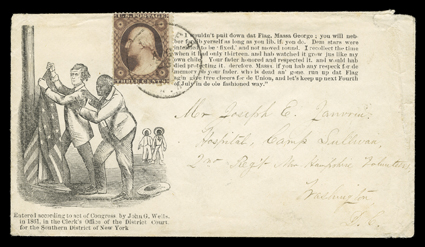 "I wouldn't pull down dat Flag, Massa George; you will neb-
ber forgib yerself as long as you lib, if you do. Dem stars were
intended to be 'fixed,' and not moved round. I recollect the time
when it had only thirteen, and hab watched it grow jus like my
own child. Your fader honored and respected it, and would hab
died protecting it, derefore Massa if you hab any respeck for de
memory ob your fader, who is dead an' gone, run up dat Flag
three cheers for de Union, and let's keep up next Fourth
of July in de ole fashioned way."
THREE CENTS
Mr Joseph C.
Hospital, Camp Sullivan,
2nd Regt New Hampshire Volunteers
Washington
D.C.
Entered according to act of Congress by John G. Wells,
in 1861, in the Clerk's Office of the District Court,
for the Southern District of New York